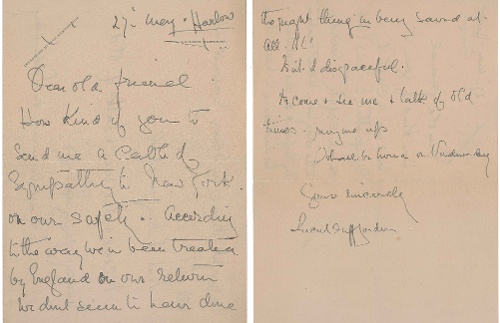 27th May - Harlow
Dear old friend
How kind of you to
send me a cable of
Sympathy to New York.
on our safety. According
to the way we've been treated
by England on our return
we dont seem to have done
the right thing in being saved at
all. All!
Is it disgraceful.
to come & see me & talk of old
times - ring me up
I shall be home on Wednesday
Yours sincerely
Lucile Duff Gordon